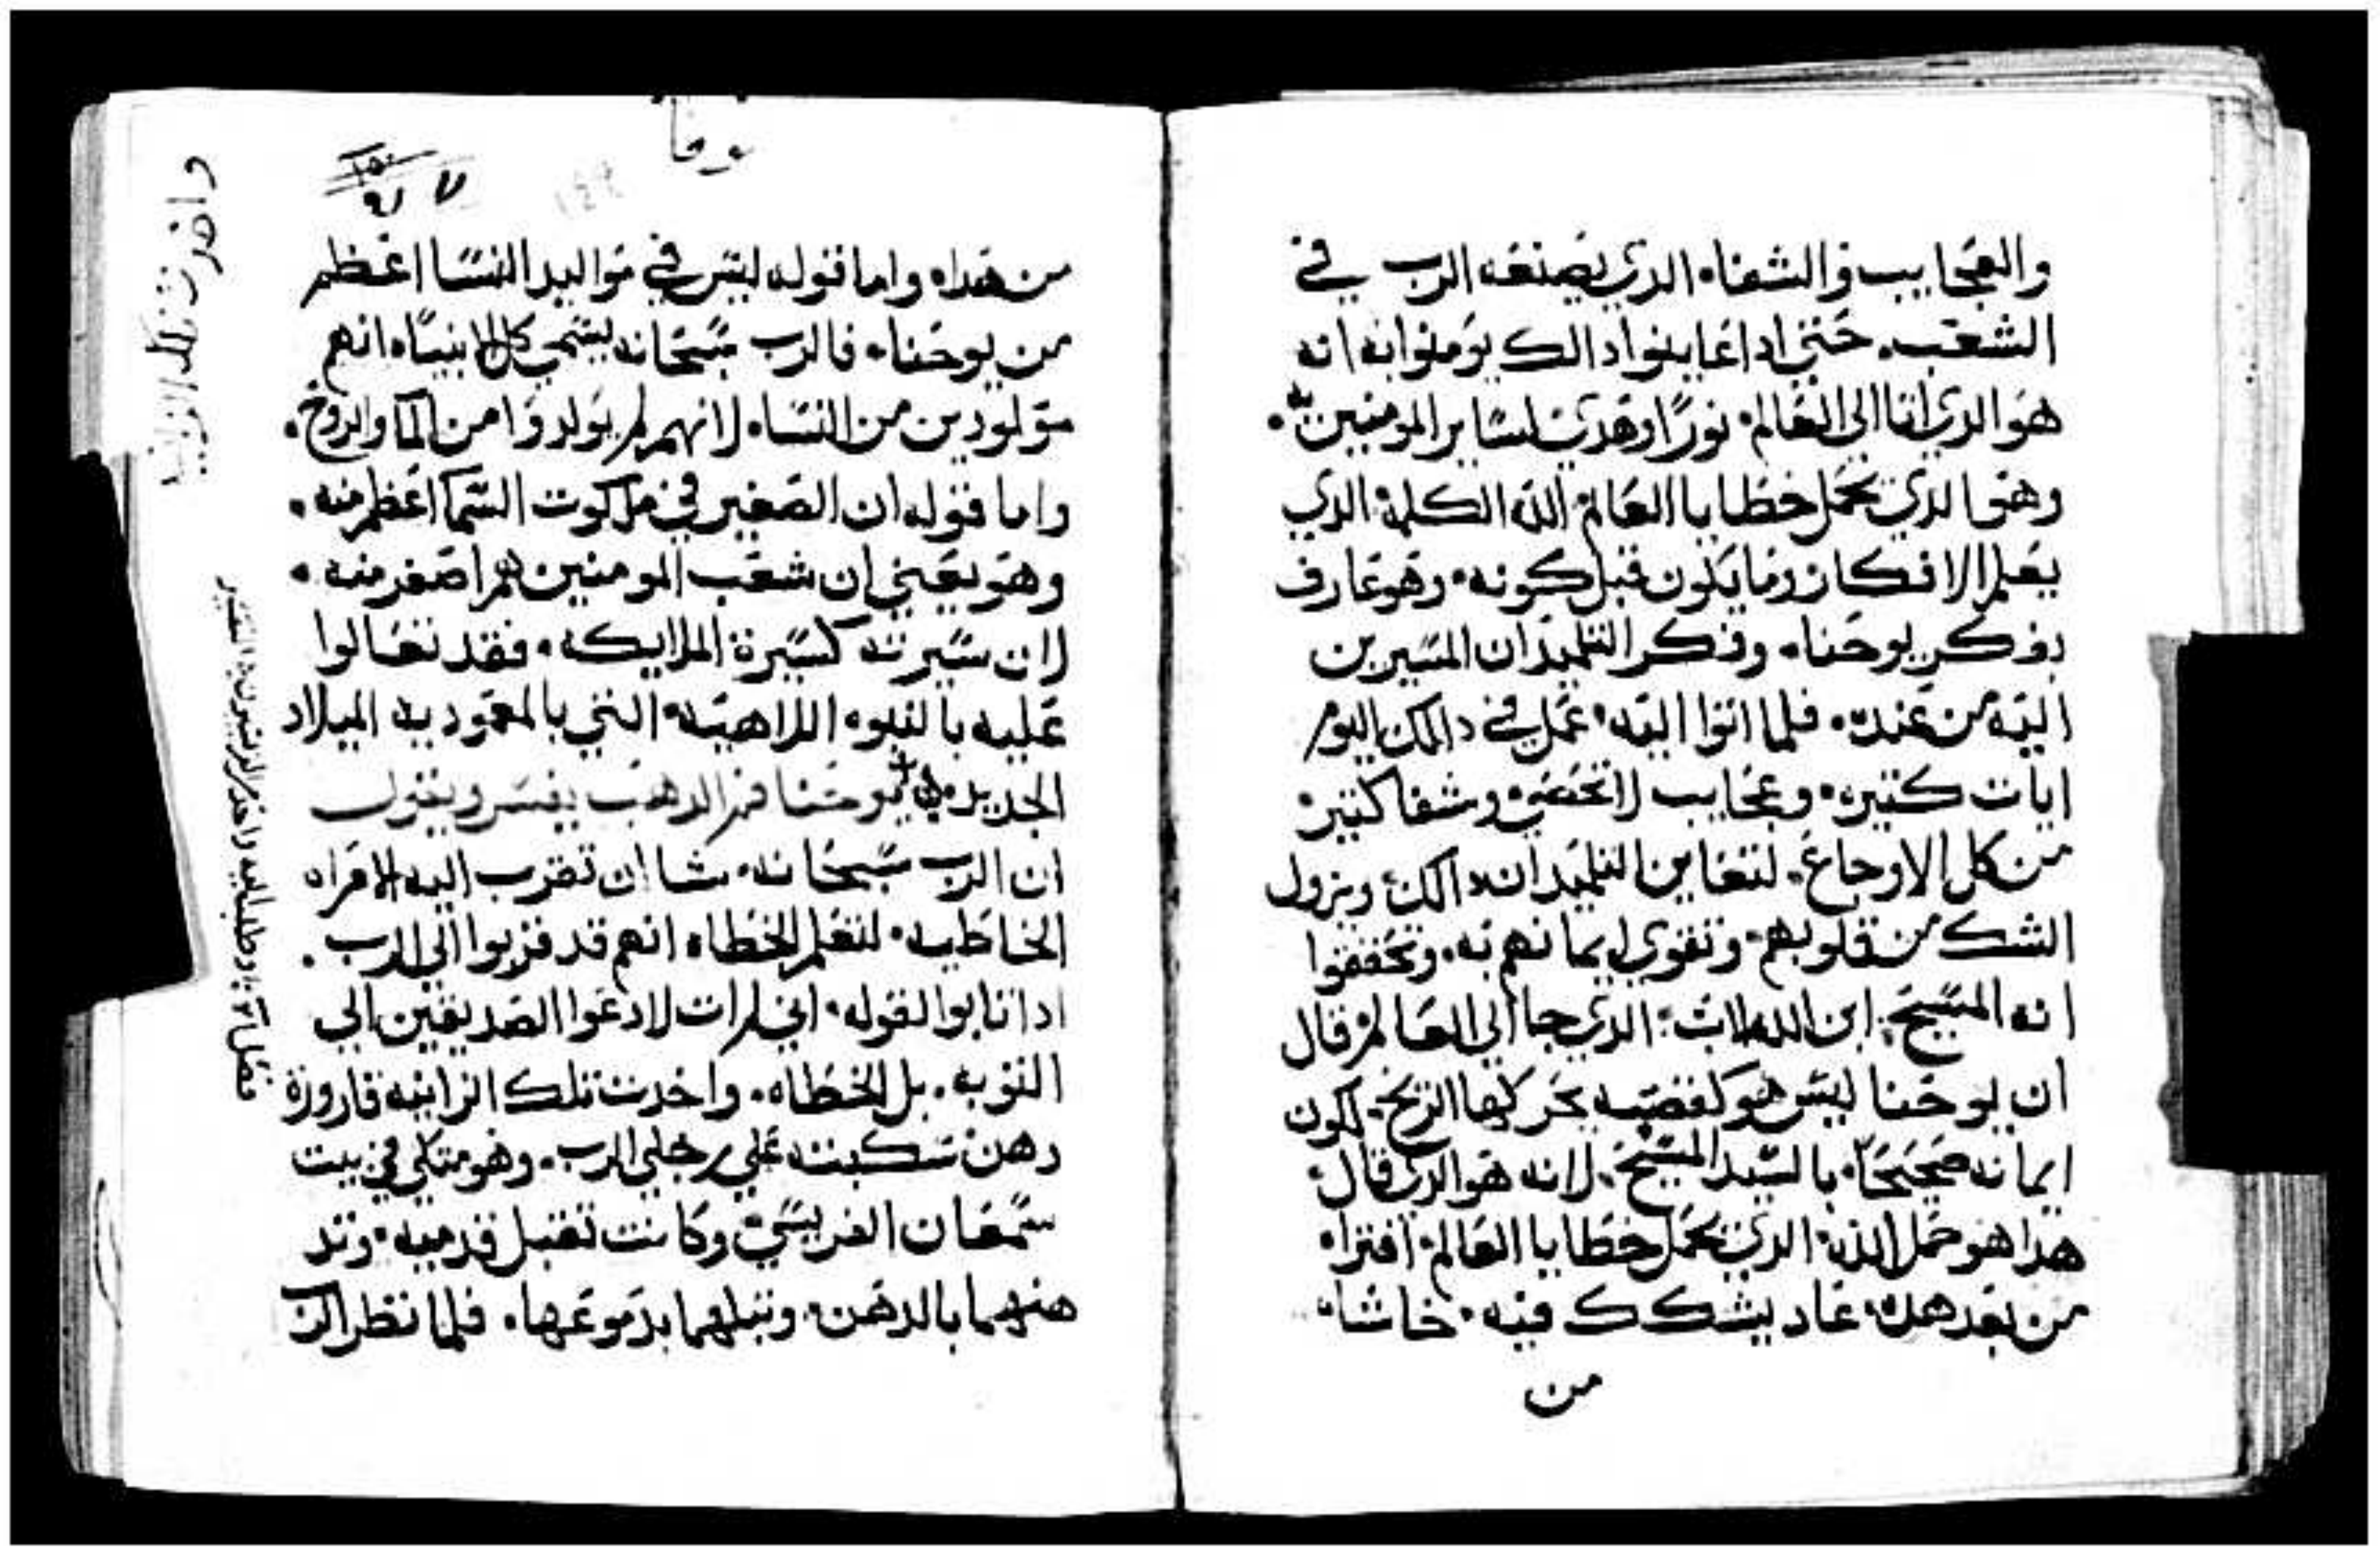 والعجايب والشفاه الدي يصنعه الرب في
الشعب. حتي ادا عاينوا دالك يومنوا به انه
هو الدي اتا الي العالم نورًا وهدي لساير المومنين به.
وهو الدي يحمل خطايا العالم الله الكلمة الدي
يعلم الافكار وما يكون قبل كونه. وهو عارف
بفكر يوحنا. وفكر التلميدان المسيرين
اليه من عنده. فلما اتوا اليه عمل في دالك اليوم
ايات كتيره. وعجايب لا تحصي وشفا كتير
من كل الاوجاع. لتعاين التلميدان دالك ويزول
الشك من قلوبهم. وتقوي ايمانهم به. وتحققوا
انه المسيح ابن الله الاب الدي جا الي العالم قال
ان يوحنا ليس هو كقصبه تحركها الريح. لكون
ايمانه صحيحًا. بالسيد المسيح. لانه هو الدي قال
هدا هو حمل الله الدي يحمل خطايا العالم افترا
من بعد هده عاد يشكك فيه. حاشا
من
لوقا
٧
من هداه واما قوله ليس في مواليد النسا اعظم
من يوحنا. فالرب سبحانه يسمي كل الانبياه انهم
مولودين من النساه. لانهم لم يولدوا من الما والروح.
واما قوله ان الصغير في ملكوت السما اعظم منه.
وهو يعني ان شعب المومنين هم اصغر منه.
لان سيرته كسيرة الملايكه. فقد تعالوا
عليه بالنبوه اللاهيه التي بالمعموديه الميلاد
الجديد. يوحنا فم الدهب يفسر ويقول
ان الرب سبحانه. شا ان تقرب اليه الامراه
الخاطيه. لتعلم الخطاه انهم قد قربوا الي الرب.
ادا تابوا لقوله. اني لم ات لادعوا الصديقين الي
التوبه. بل الخطاه. واخدت تلك الزانيه قارورة
دهن سكبته علي رجلي الرب. وهو متكي في بيت
سمعان الفريسي وكانت تقبل قدميه. وتد
هنهما بالدهن وتبلهما بدموعها. فلما نظر الرب
واخدت تلك الزانيه